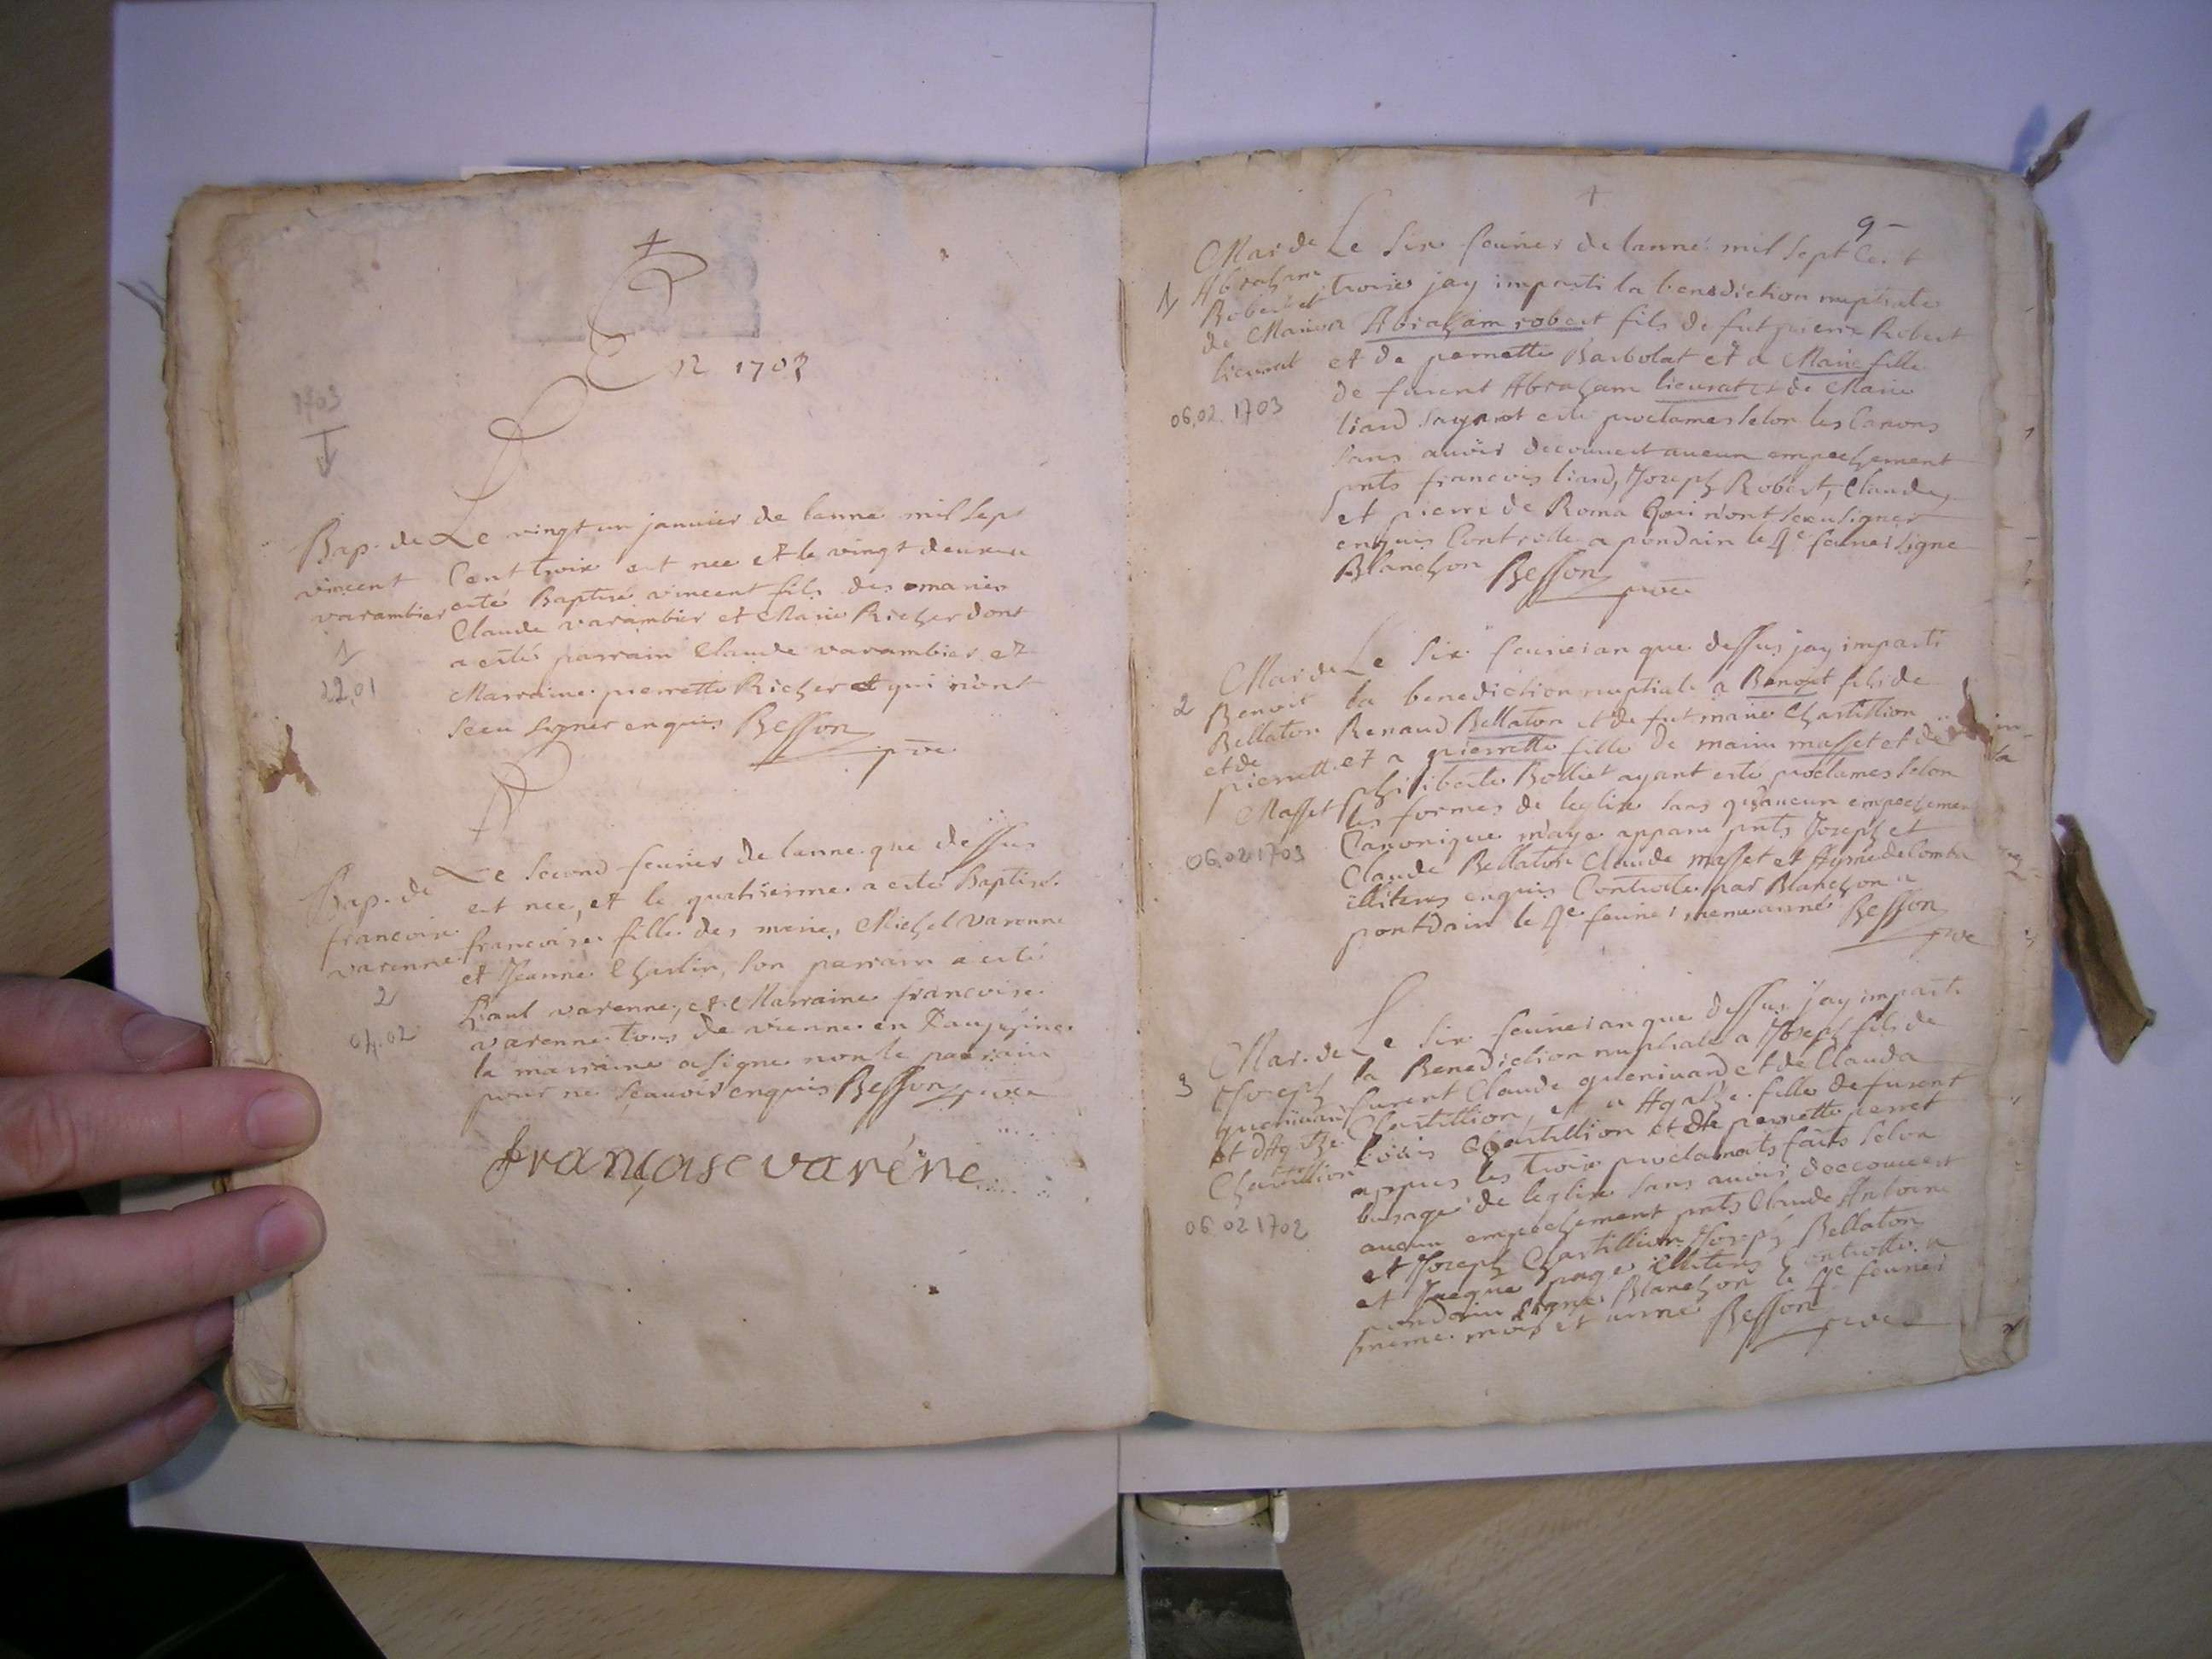 En 1703
1703
Bap. de
vincent
varambier
1
22.01
Le vingt un janvier de lanne mil sept
Cent trois est nee et le vingt deuxieme
esté Baptisé vincent fils des maries
Claude varambier et Marie Richer dont
a estés parrain Claude varambier et
Marraine pierrette Richer et qui n'ont
sceu signer enquis Besson
Bap. de
francoise
varenne
2
04.02
Le second feurier de lanne que dessus
est nee, et le quatriesme a esté Baptise
francoise fille des maries Michel Varenne
et Jeanne Charlin, son parrain a esté
Paul varenne, et Marraine francoise
varenne tous de vienne en Daupfine
la marraine a signe non le parrain
pour ne scauoir enquis Besson
françoise varéne
9
Mar de
Abraham
Robert et
de Marie
lieurat
1
06.02.1703
Le six feurier de lanné mil sept Cent
trois jay imparti la benediction nuptiale
a Abraham robert fils de fut pierre Robert
et de pernette Barbolat et a Marie fille
de furent Abraham lieurat et de Marie
liard ayant esté proclames selon les Canons
sans auoir decouuert aucun empechement
pnts francois liard, Joseph Robert, Claude
et pierre de Roma Qui n'ont sceu signer
enquis Controlle a pondain le 4e feurier signe
Blanchon Besson
Mar de
Benoit
Bellaton
et de
pierrette
Masset
2
06.02.1703
Le six feurier an que dessus jay imparti
la benediction nuptiale a Benoit fils de
Renaud Bellaton et de fut marie Chastillion
et a pierrette fille de masset et de
philiberte Bolliet ayant esté proclames selon
les formes de leglise sans qu'aucun empechement
Canonique m'aye apparu pnts Joseph et
Claude Bellaton Claude masset et Aymé de Comba
illiteres enquis Controlle par Blanchon a
pontdain le 4e feurier meme anné Besson
Mar. de
Joseph
queniuard
et dAgathe
Chastillion
3
06 02 1702
Le six feurier an que dessus j'ay imparti
la Benediction nuptiale a Joseph fils de
furent Claude queniuard et de Clauda
Chastillion, et a Agathe fille de furent
Louis Chastillion et de pernette perret
apprès les trois proclamats faits selon
lusage de leglise sans auoir decouuert
aucun empechement pnts Claude Antoine
et Joseph Chastillion Joseph Bellaton
et Jacque page illiteres Controlle a
pondain signe Blanchon le 4e feurier
meme mois et anné Besson